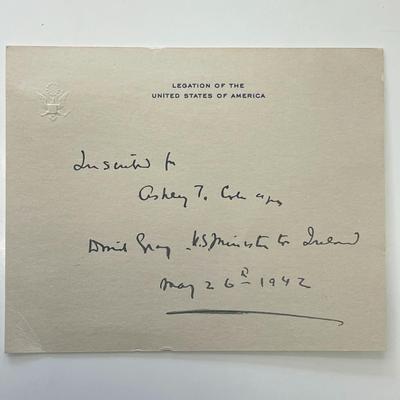 LEGATION OF THE
UNITED STATES OF AMERICA
Inscribed for
Ashley T. Cole
David Gray U.S Minister to Ireland
May 26th 1942